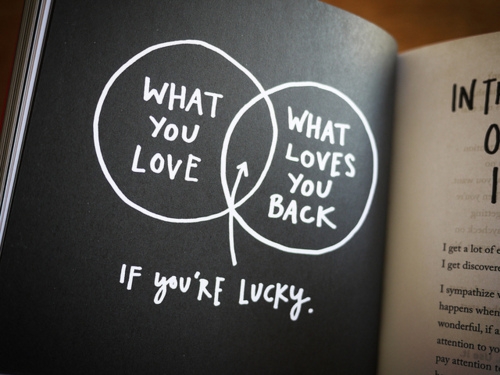 WHAT
YOU
LOVE
WHAT
LOVES
YOU
BACK
IF YOU'RE LUCKY.
IN T
O
I
I get a lot of e
I get discovere
I sympathize w
happens when
wonderful, if a
attention to yo
pay attention to